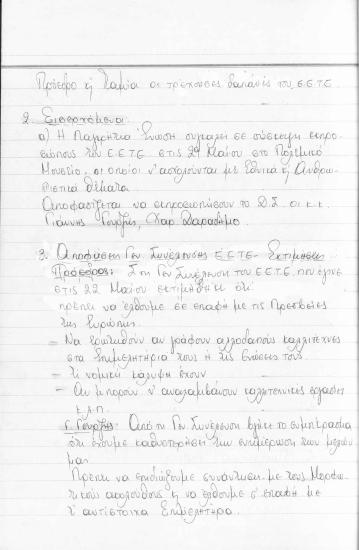 Πρόεδρο ή Ταμία οι τρέχουσες δαπάνες του Ε.Ε.Τ.Ε.
2. Εισερχόμενα:
α) Η Παγκρήτια Ένωση συγκαλεί σε σύσκεψη εκπρο-
σώπους του Ε.Ε.Τ.Ε. στις 29 Μαΐου στο Πολεμικό
Μουσείο, οι οποίοι ν' ασχολούνται με Εθνικά ή Ανθρω-
πιστικά θέματα.
Αποφασίζεται να εκπροσωπήσουν το Δ.Σ. οι κ.κ.
Γιάννης Γουρζής, Χαρ. Δαραδήμο
3. Αποφάσεις Γεν. Συνέλευσης Ε.Ε.Τ.Ε - Εκτιμήσεις
Πρόεδρος: Στη Γεν. Συνέλευση του Ε.Ε.Τ.Ε. που έγινε
στις 22 Μαΐου εκτιμήθηκε ότι
πρέπει να έλθουμε σε επαφή με τις Πρεσβείες
της Ευρώπης.
– Να ερωτηθούν αν γράφουν αλλοδαπούς καλλιτέχνες
στα Επιμελητήρια τους ή τις Ενώσεις τους.
– Τι νομική κάλυψη έχουν
– Αν μπορούν ν' αναλαμβάνουν καλλιτεχνικές εργασίες
κ.λ.π.
Γ. Γουρζής: Από τη Γεν. Συνέλευση βγήκε το συμπέρασμα
ότι έχουμε καθυστερήσει την ενημέρωση των μελών
μας.
Πρέπει να επιδιώξουμε συνάντηση με τους Μορφω-
τικούς ακολούθους ή να έλθουμε σ' επαφή με
τ' αντίστοιχα Επιμελητήρια.